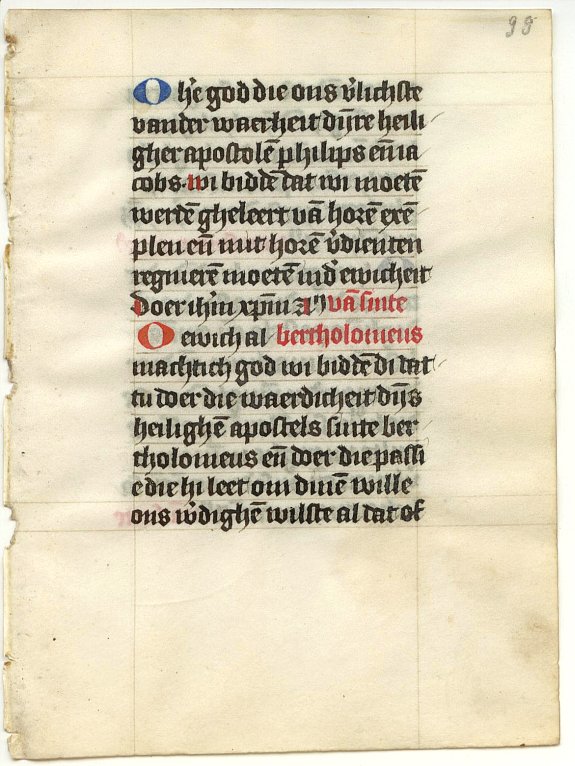 99
O hr̄e god die ons v̓lichste
vander waerheit dijnre heili
gher apostolē philips en̄ ia
cobs. wi biddē dat wi moetē
werdē gheleert vā horē exē
plen en̄ mit horē v̓dienten
regnierē moetē ind̓ ewicheit
Doer ihm̄ xpm̄ vā sinte
O ewich al bertholomeus
machtich god wi biddē di dat
tu doer die waerdicheit dijs
heilighē apostels sinte ber
tholomeus en̄ doer die passi
e die hi leet om dinē wille
ons w̓dighē wilste al dat of